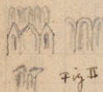 Fig II